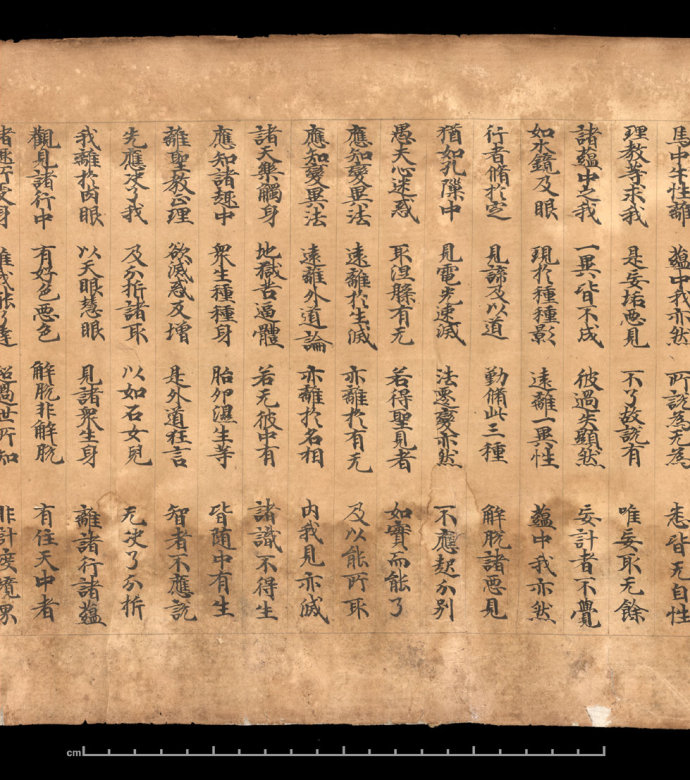 馬中牛性離 蘊中我亦然 所說為无為 悉皆无自性
理教等求我 是妄垢惡見 不了故說有 唯妄取无餘
諸蘊中之我 一異皆不成 彼過失顯然 妄計者不覺
如水鏡及眼 現於種種影 遠離一異性 蘊中我亦然
行者脩於定 見諦及以道 勤脩此三種 解脫諸惡見
猶如孔隙中 見電光速滅 法遷變亦然 不應起分別
愚夫心迷惑 取涅槃有无 若得聖見者 如實而能了
應知變異法 遠離於生滅 亦離於有无 及以能所取
應知變異法 遠離外道論 亦離於名相 內我見亦滅
諸天樂觸身 地獄苦逼體 若无彼中有 諸識不得生
應知諸趣中 衆生種種身 胎卵濕生等 皆隨中有生
離聖教正理 欲滅惑反增 是外道狂言 智者不應說
先應決了我 及分析諸取 以如石女兒 无決了分析
我離於肉眼 以天眼慧眼 見諸衆生身 離諸行諸蘊
觀見諸行中 有好色惡色 解脫非解脫 有住天中者
諸趣所受身 唯我能了達 超過世所知 非計度境界
cm